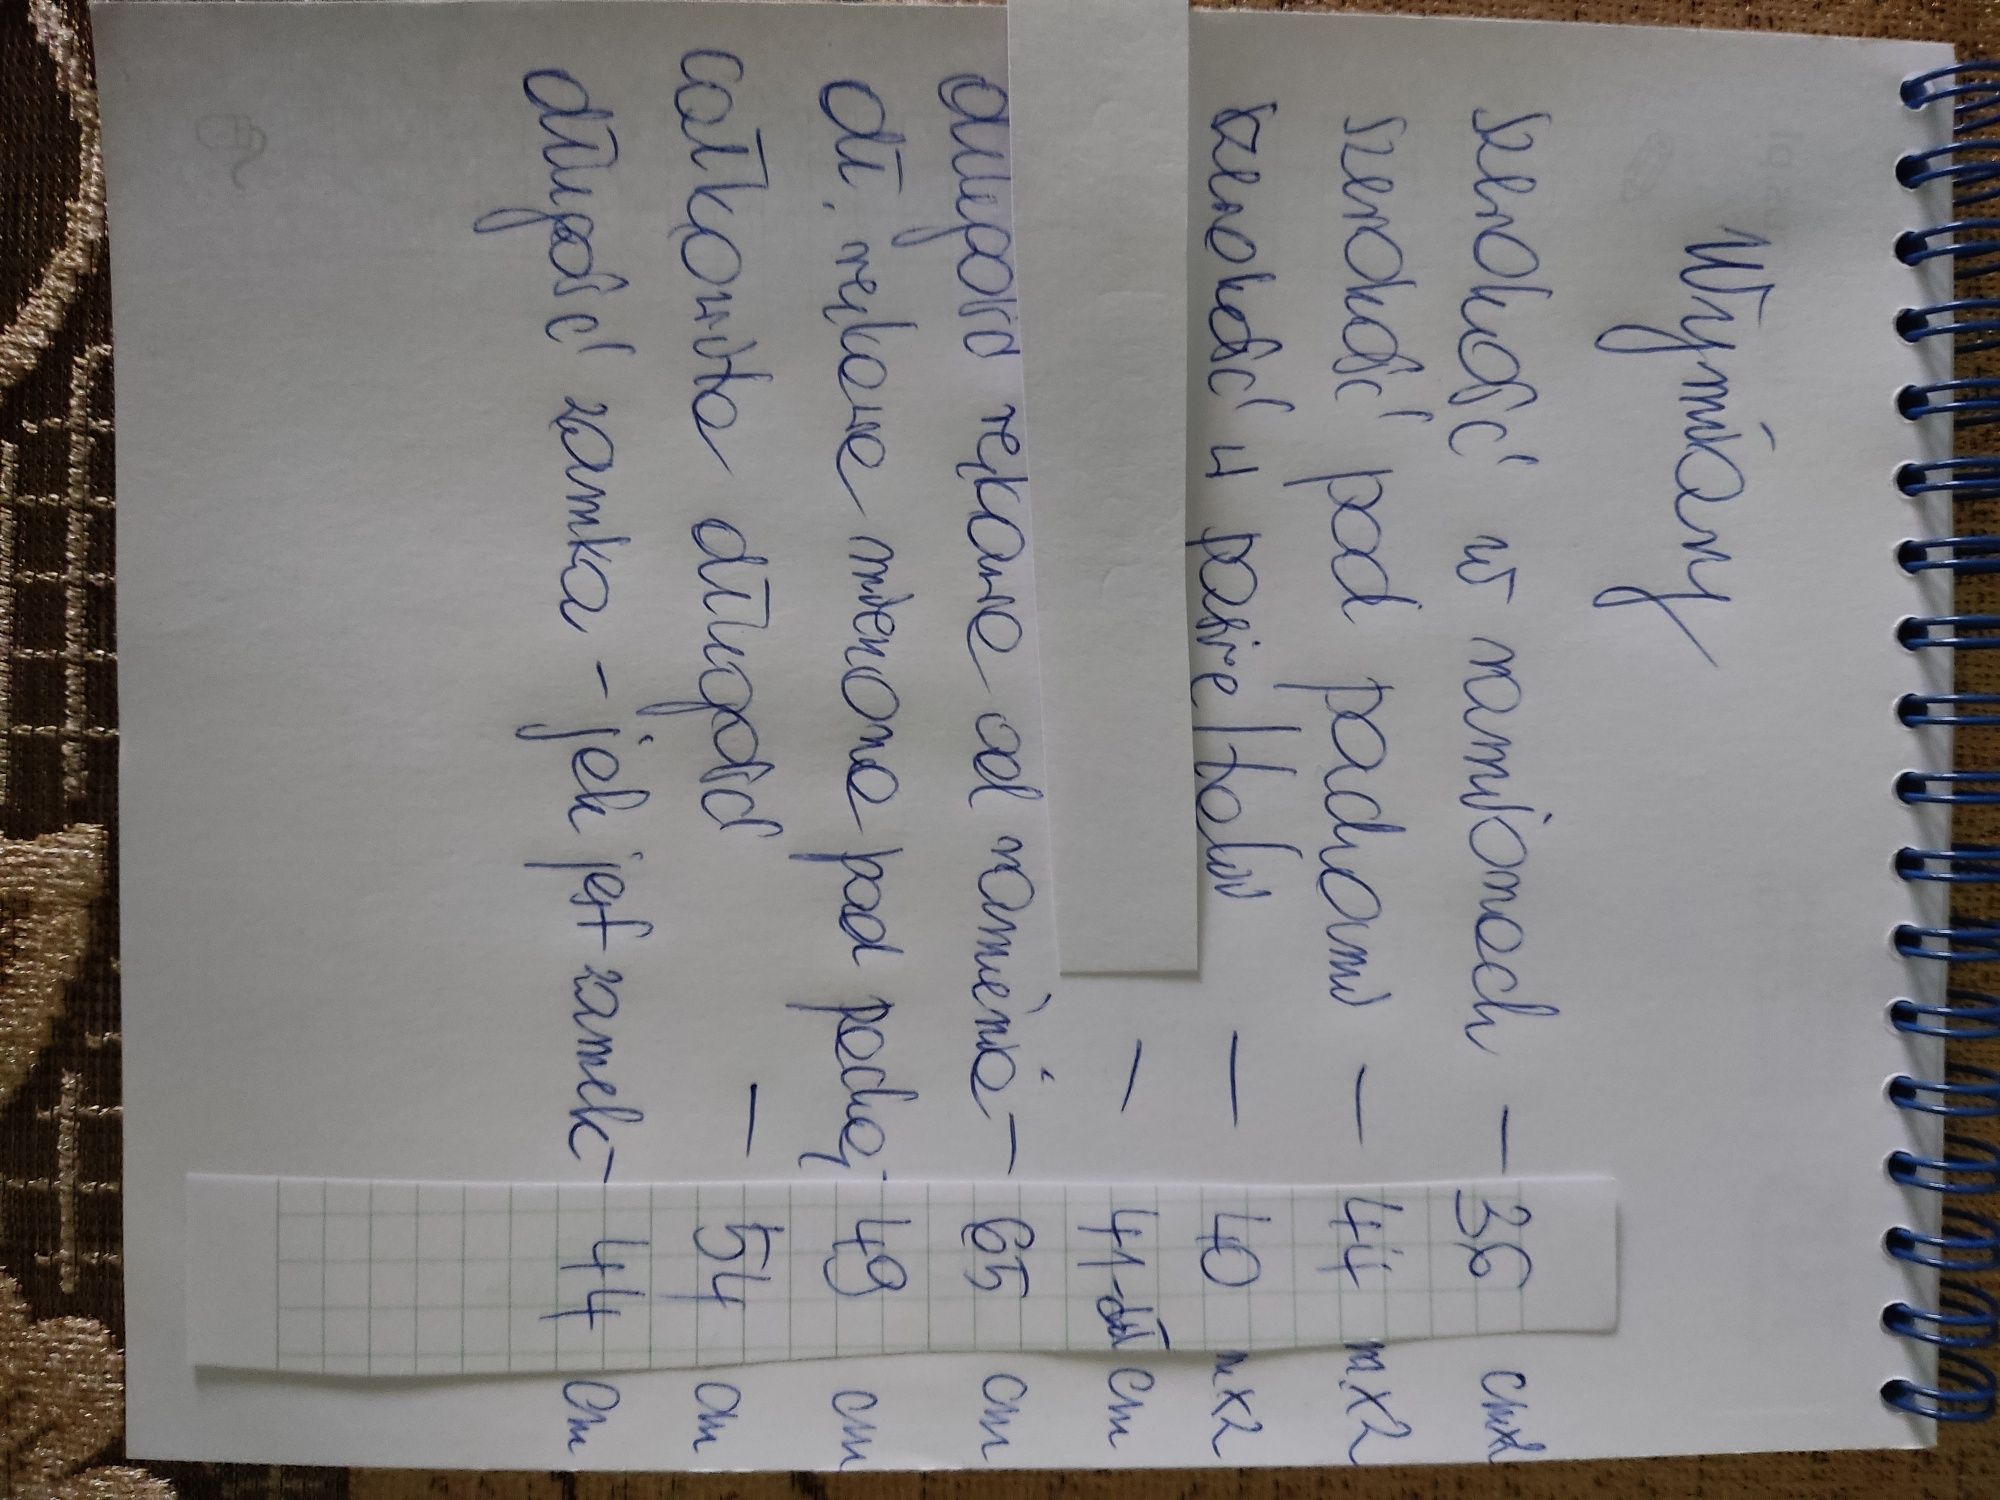 Wymiary
szerokość w ramionach - 36 cmx2
szerokość pod pachami - 44 mx2
szerokość w pasie/talii - 40 mx2
- 41-dół cm
długość rękawa od ramienia - 65 cm
dł. rękawa mierzona pod pachą - 49 cm
całkowita długość - 54 cm
długość zamka - jak jest zamek - 44 cm